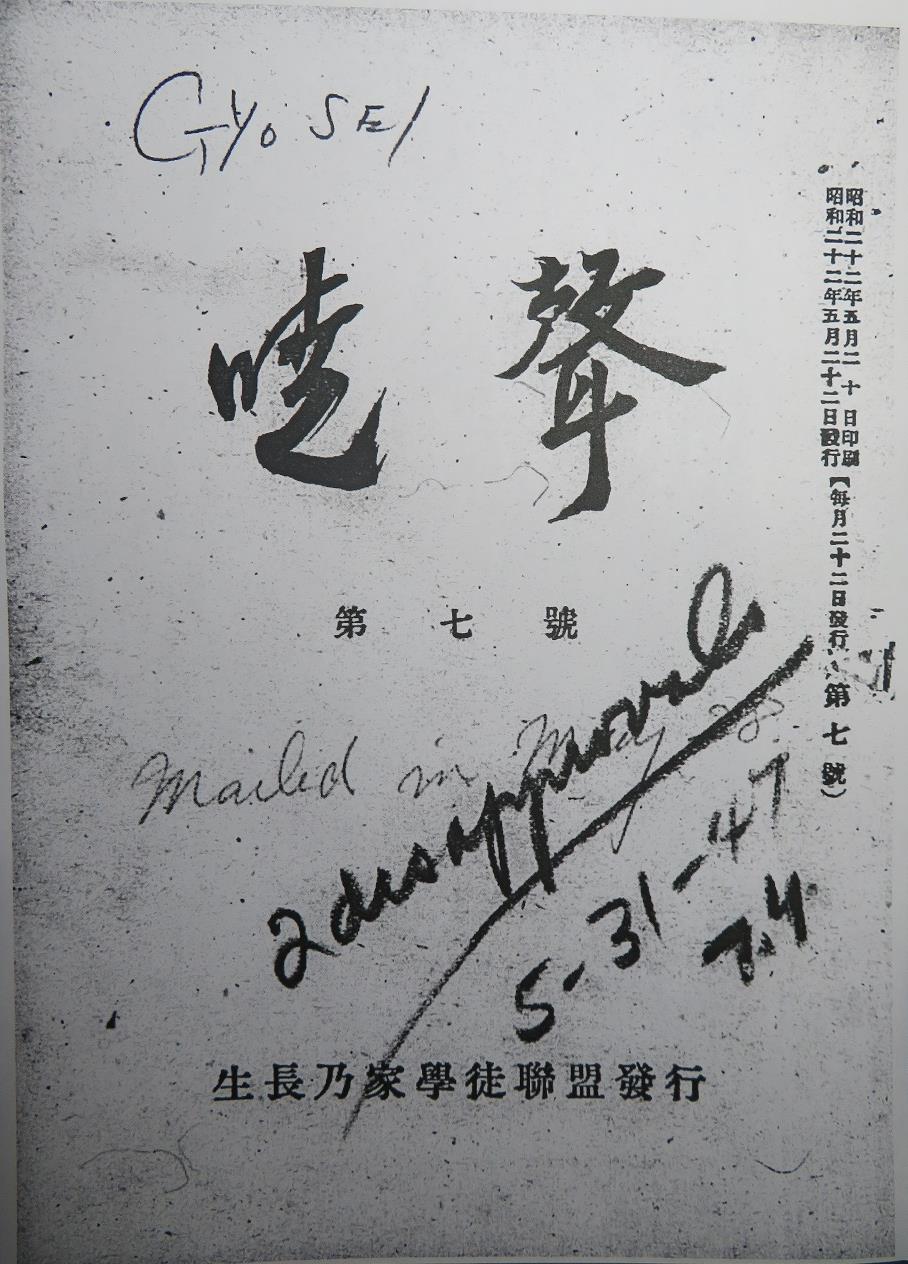 GYOSEI
暁聲
昭和二十二年五月二十日印刷
昭和二十二年五月二十二日發行【每月二十二日發行】第七號)
第七號
Mailed in May 28
2 disapproval
5-31-47
生長乃家學徒聯盟發行